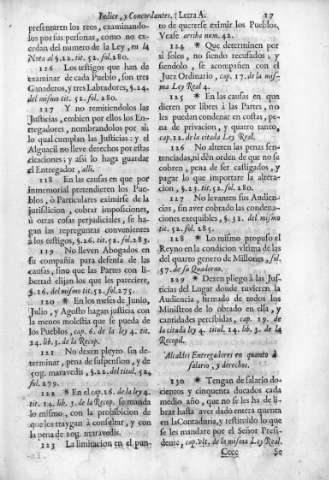 Indice, y Concordantes. (Letra A. 17
presentaren los reos, examinando-
los por sus personas, como no ex-
cedan del numero de la Ley, en la
Nota al §.22. tit. 52. fol.280.
116 Los testigos que han de
examinar de cada Pueblo, son tres
Ganaderos, y tres Labradores, §.24.
del mismo tit. 52. fol. 280.
117 Y no remitiendolos las
Justicias, embien por ellos los En-
tregadores, nombrandolo por si
lo qual cumplan las Justicias: y el
Alguacil no lleve derechos por estas
citaciones; y asi lo haga guardar
el Entregador, alli.
118 En las causas en que por
inmemorial pretendieren los Pue-
blos, ò Particulares eximirse de la
jurisdicion, cobrar imposiciones, ù
otras cosas perjudiciales, se ha-
gan las repreguntas convenientes
à los testigos, §.26. tit. 52. fol.283.
119 No lleven Abogados en
su compañia para defensa de las
causas, sino que las Partes con li-
bertad elijan los que les pareciere,
§.16. del mismo tit. 52. fol.275.
120 ✱ En los meses de Junio,
Julio, y Agosto hagan justicia con
la menos molestia que se pueda de
los Pueblos, cap. 6. de la ley 4. tit.
14. lib. 3. de la Recop.
121 No dexen pleyto sin de-
terminar, pena de suspension, y de
50y. maravedis, §.22. del titul. 52.
fol. 279.
122 ✱ En el cap.16. de la ley 4.
tit. 14. lib. 3. de la Recop. se manda
lo mismo, con la prohibicion de
que los traygan à consultar, y con
la pena de 20y. maravedis.
123 La limitacion en el pun-
to de quererse eximir los Pueblos,
Vease arriba num. 42.
124 ✱ Que determinen por
si solos, no siendo recusados; y
siendolo, se acompañen con el
Juez Ordinario, cap. 17. de la mis-
ma Ley Real 4.
125 ✱ En las causas en que
dieren por libres à las Partes, no
les puedan condenar en costas, pe-
na de privacion, y quatro tanto,
cap. 12. de la citada Ley Real.
126 No alteren las penas sen-
tenciadas, ni dèn orden de que no se
cobren, pena de ser castigados, y
pagar lo que importare la altera-
cion, §.23. tit. 52. fol. 280.
127 No levanten sus Audien-
cias, sin aver cobrado las condena-
ciones exequibles, §.31. del mismo
tit. 52. fol. 285.
128 ✱ Lo mismo propuso el
Reyno en la condicion vltima de las
del quarto genero de Millones, fol.
57. de su Quaderno.
129 ✱ Dexen pliego à las Jus-
ticias del Lugar donde tuvieren la
Audiencia, firmado de todos los
Ministros de lo obrado en ella, y
cantidades percibidas, cap. 19. de
la citada ley 4. titul. 14. lib. 3. de la
Recopil.
Alcaldes Entregadores en quanto à
salario, y derechos.
130 ✱ Tengan de salario do-
cientos y cinquenta ducados cada
medio año, que no se les ha de li-
brar hasta aver dado entera quenta
en la Contaduria, y testimonio lo que
se les mandàre por el Señor Presi-
dente, cap. vlt. de la misma Ley Real.
Cccc Se